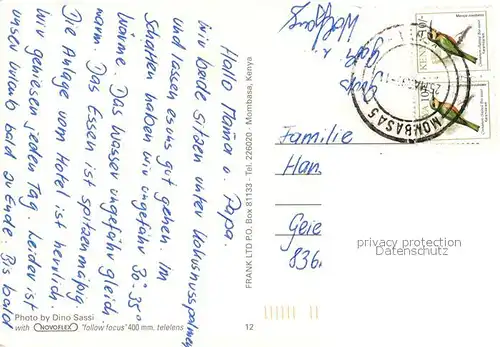 Hallo Mama u. Papa.
wir beide sitzen unter Kokusnusspalmen
und lassen es uns gut gehen. Im
Schatten haben wir ungefähr 30-35°
Wärme. Das Wasser ungefähr gleich
warm. Das Essen ist spitzenmäßig.
Die Anlage vom Hotel ist herrlich.
Wir geniessen jeden Tag. Leider ist
unser Urlaub bald zu Ende. Bis bald
Gabi u.
Wolfgang
Photo by Dino Sassi
with NOVOFLEX "follow focus" 400 mm. telelens
FRANK LTD P.O. Box 81133 - Tel. 226020 - Mombasa, Kenya
12
KENYA
KENYA
MOMBASA 5
Familie
Han
Geie
836
privacy protection
Datenschutz